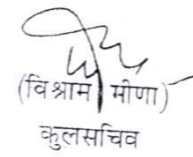 (विश्राम मीणा)
कुलसचिव